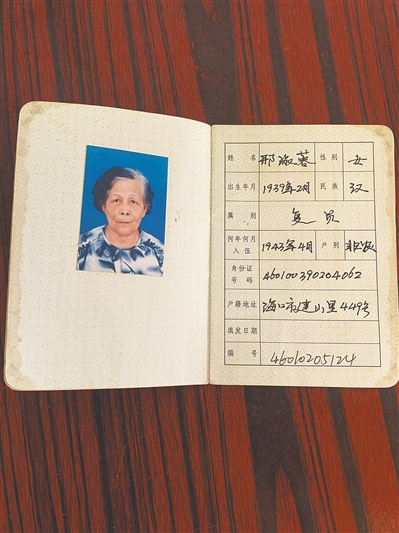 姓 名 邢淑蓉 性别 女
出生年月 1939年2月 民族 汉
属 别 复员
何年何月
入 伍 1943年4月 户别 非农
身份证
号 码 460100390204062
户籍地址 海口市建山里449号
填发日期
编 号 46010205124